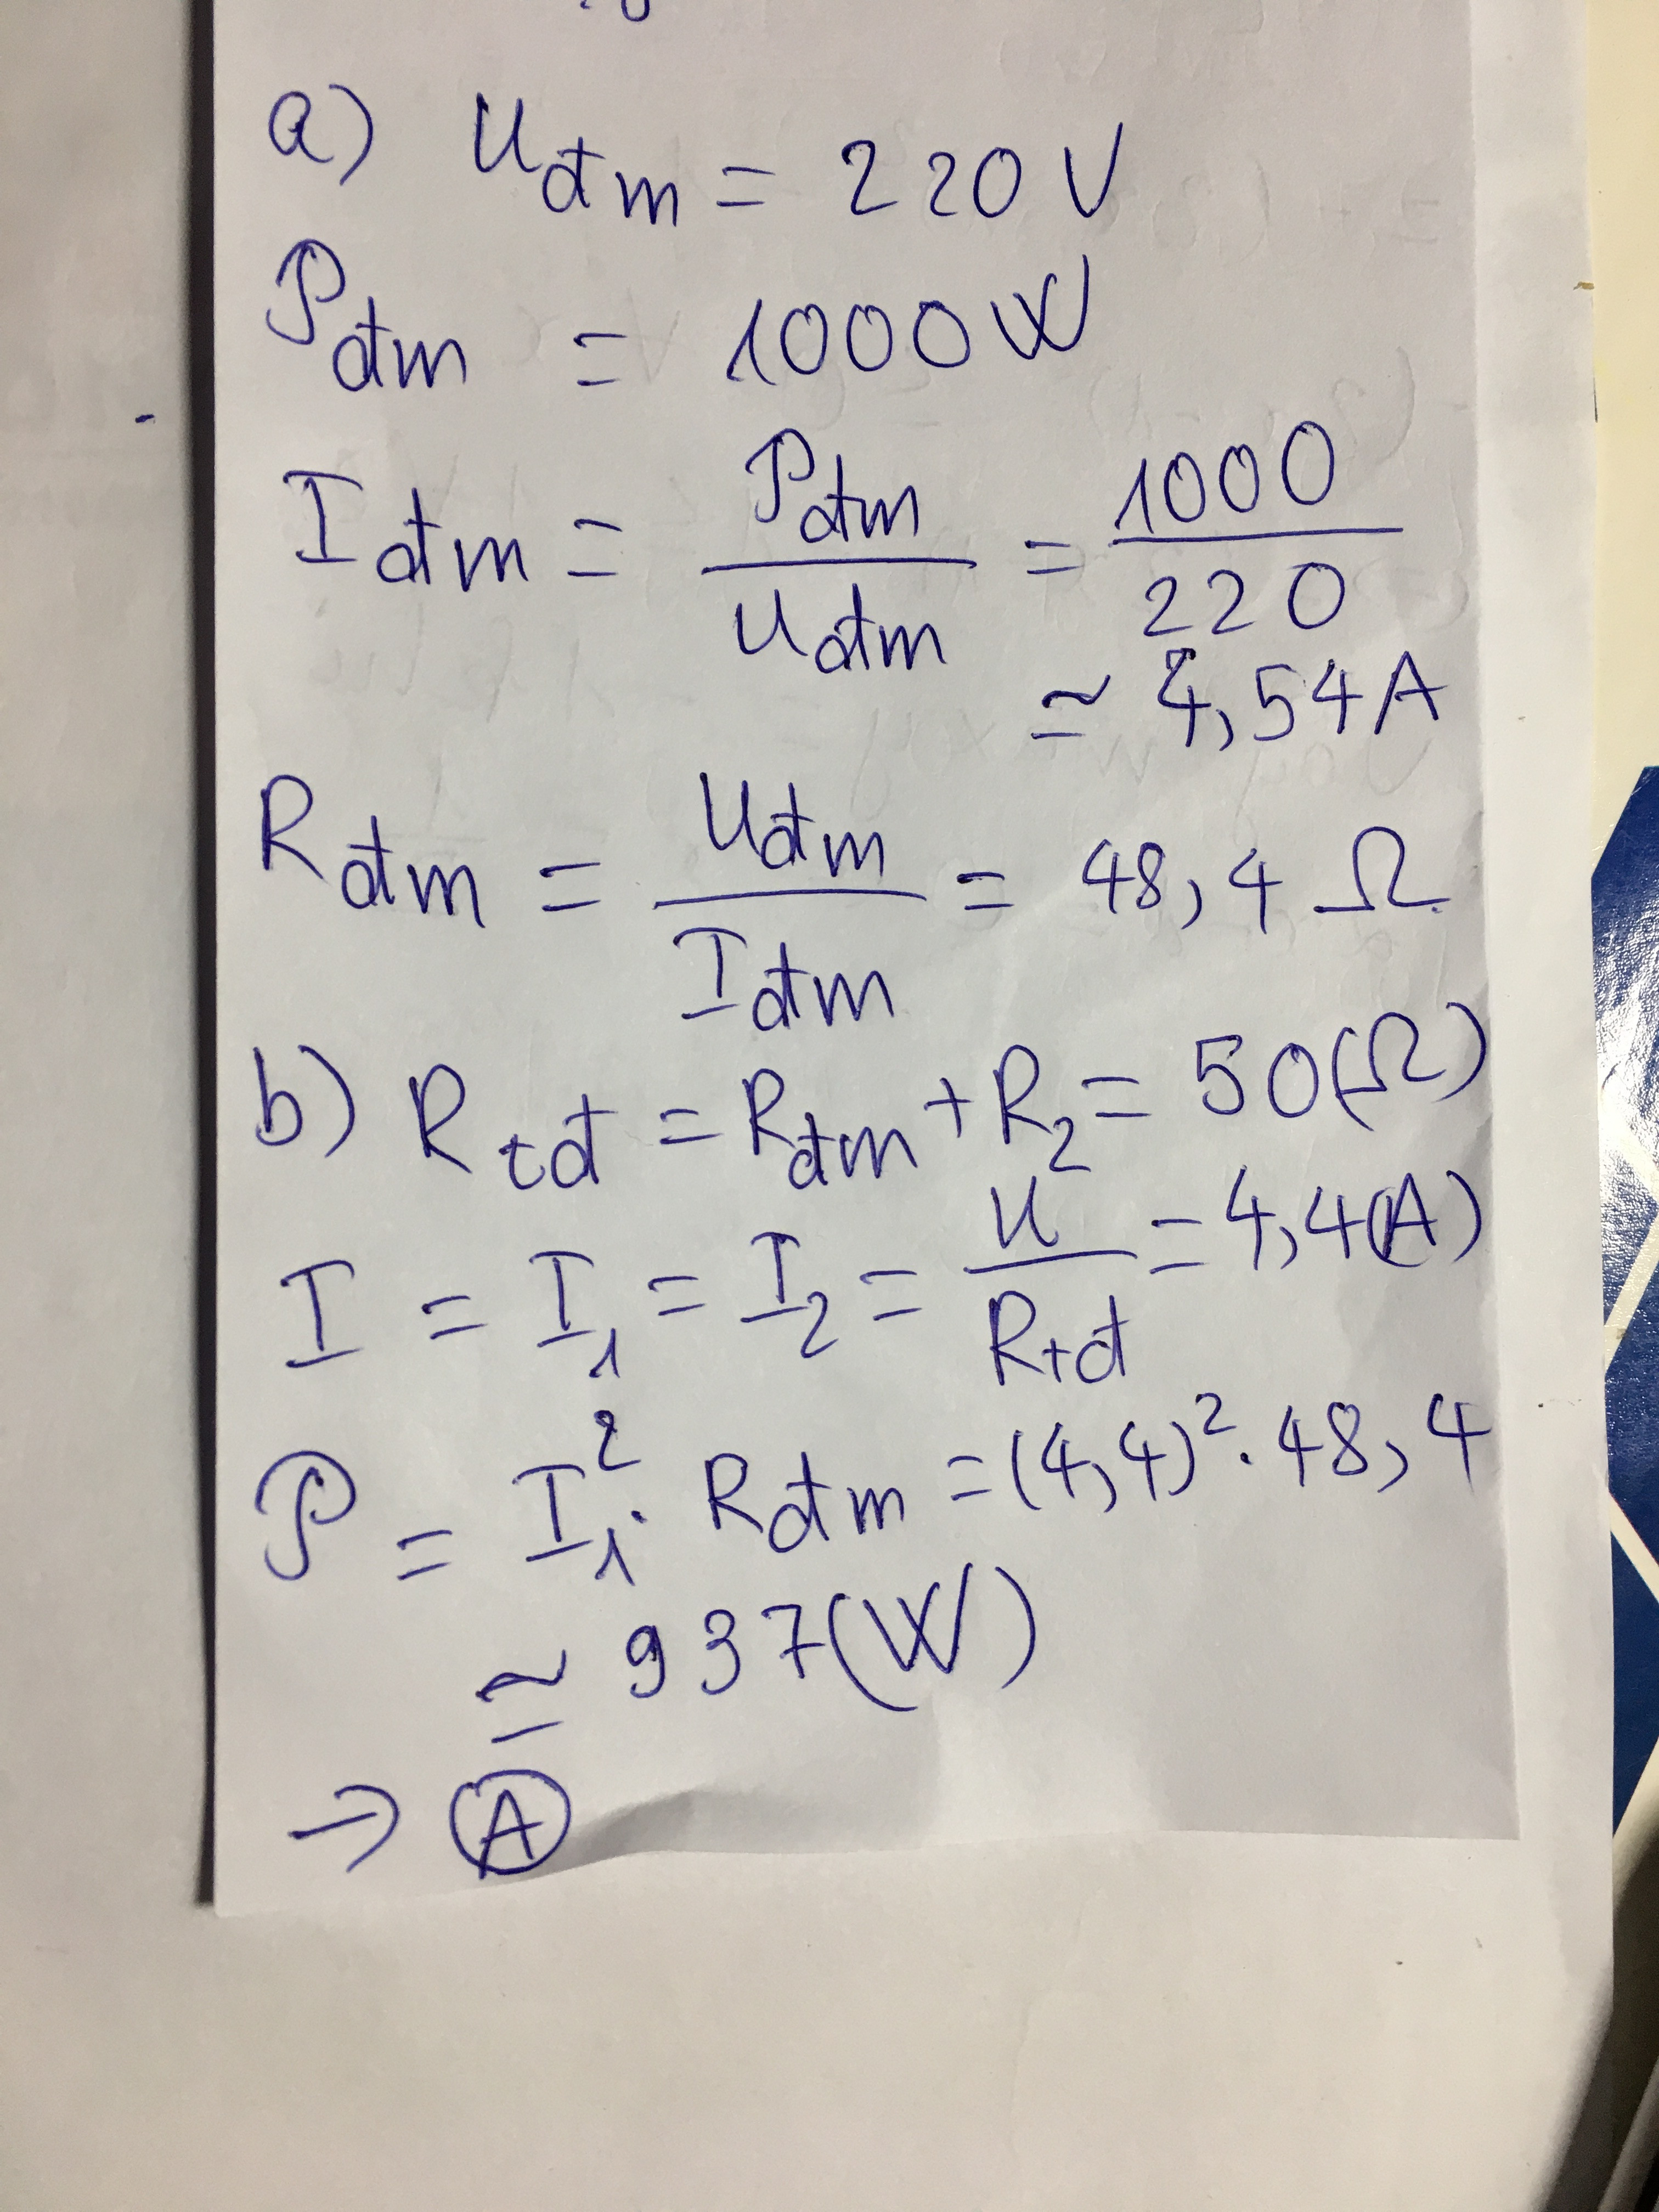 a) U đm = 220 V
P đm = 1000 W
I đm = P đm / U đm = 1000 / 220
≃ 4,54 A
R đm = U đm / I đm = 48,4 Ω
b) R tđ = R đm + R₂ = 50 (Ω)
I = I₁ = I₂ = U / R tđ = 4,4 (A)
P = I₁² . R đm = (4,4)² . 48,4
≃ 937 (W)
→ A